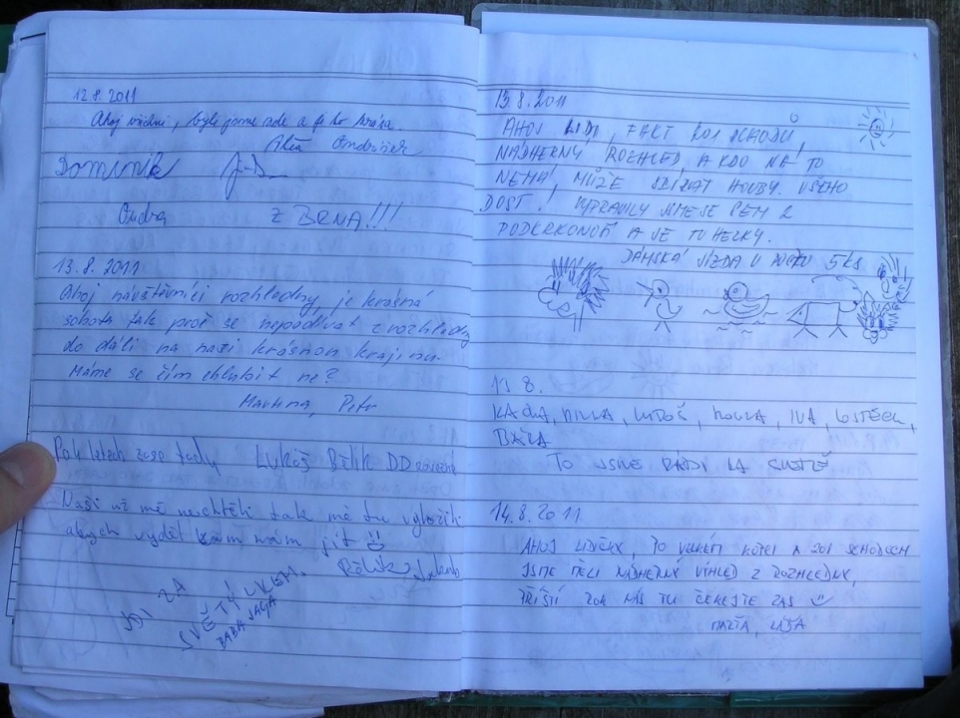 12.8.2011
Ahoj všichni, byli jsme zde a je to krása.
Dominik
Ondra Z BRNA!!!
13.8.2011
Ahoj návštěvníci rozhledny, je krásná
sobota tak proč se nepodívat z rozhledny
do dáli na naši krásnou krajinu.
Máme se čím chlubit ne?
Martina, Petr
Po letech zase tady Lukáš Bělík
Naši už mě nechtěli tak mě tu vyložili
abych vyděl kam mám jít
JDI ZA
SVĚTÝLKEM.
BABA JAGA
13.8.2011
AHOJ LIDI, FAKT 201 SCHODŮ,
NÁDHERNÝ ROZHLED, A KDO NE TO
NEMÁ, MŮŽE SBÍRAT HOUBY. VŠEHO
DOST! VYPRAVILY JSME SE SEM Z
PODKRKONOŠÍ A JE TU HEZKY.
DÁMSKÁ JÍZDA V POČTU 5 KS
8.
KÁČA, LUBOŠ, IVA,
BÁRA
TO JSME RÁDI NA SVĚTĚ
14.8.2011
AHOJ LIDIČKY, PO 201 SCHODECH
JSME MĚLI NÁDHERNÝ VÝHLED Z ROZHLEDNY,
PŘÍŠTÍ ROK NÁS TU ČEKEJTE ZAS
MÁŤA, LÁĎA